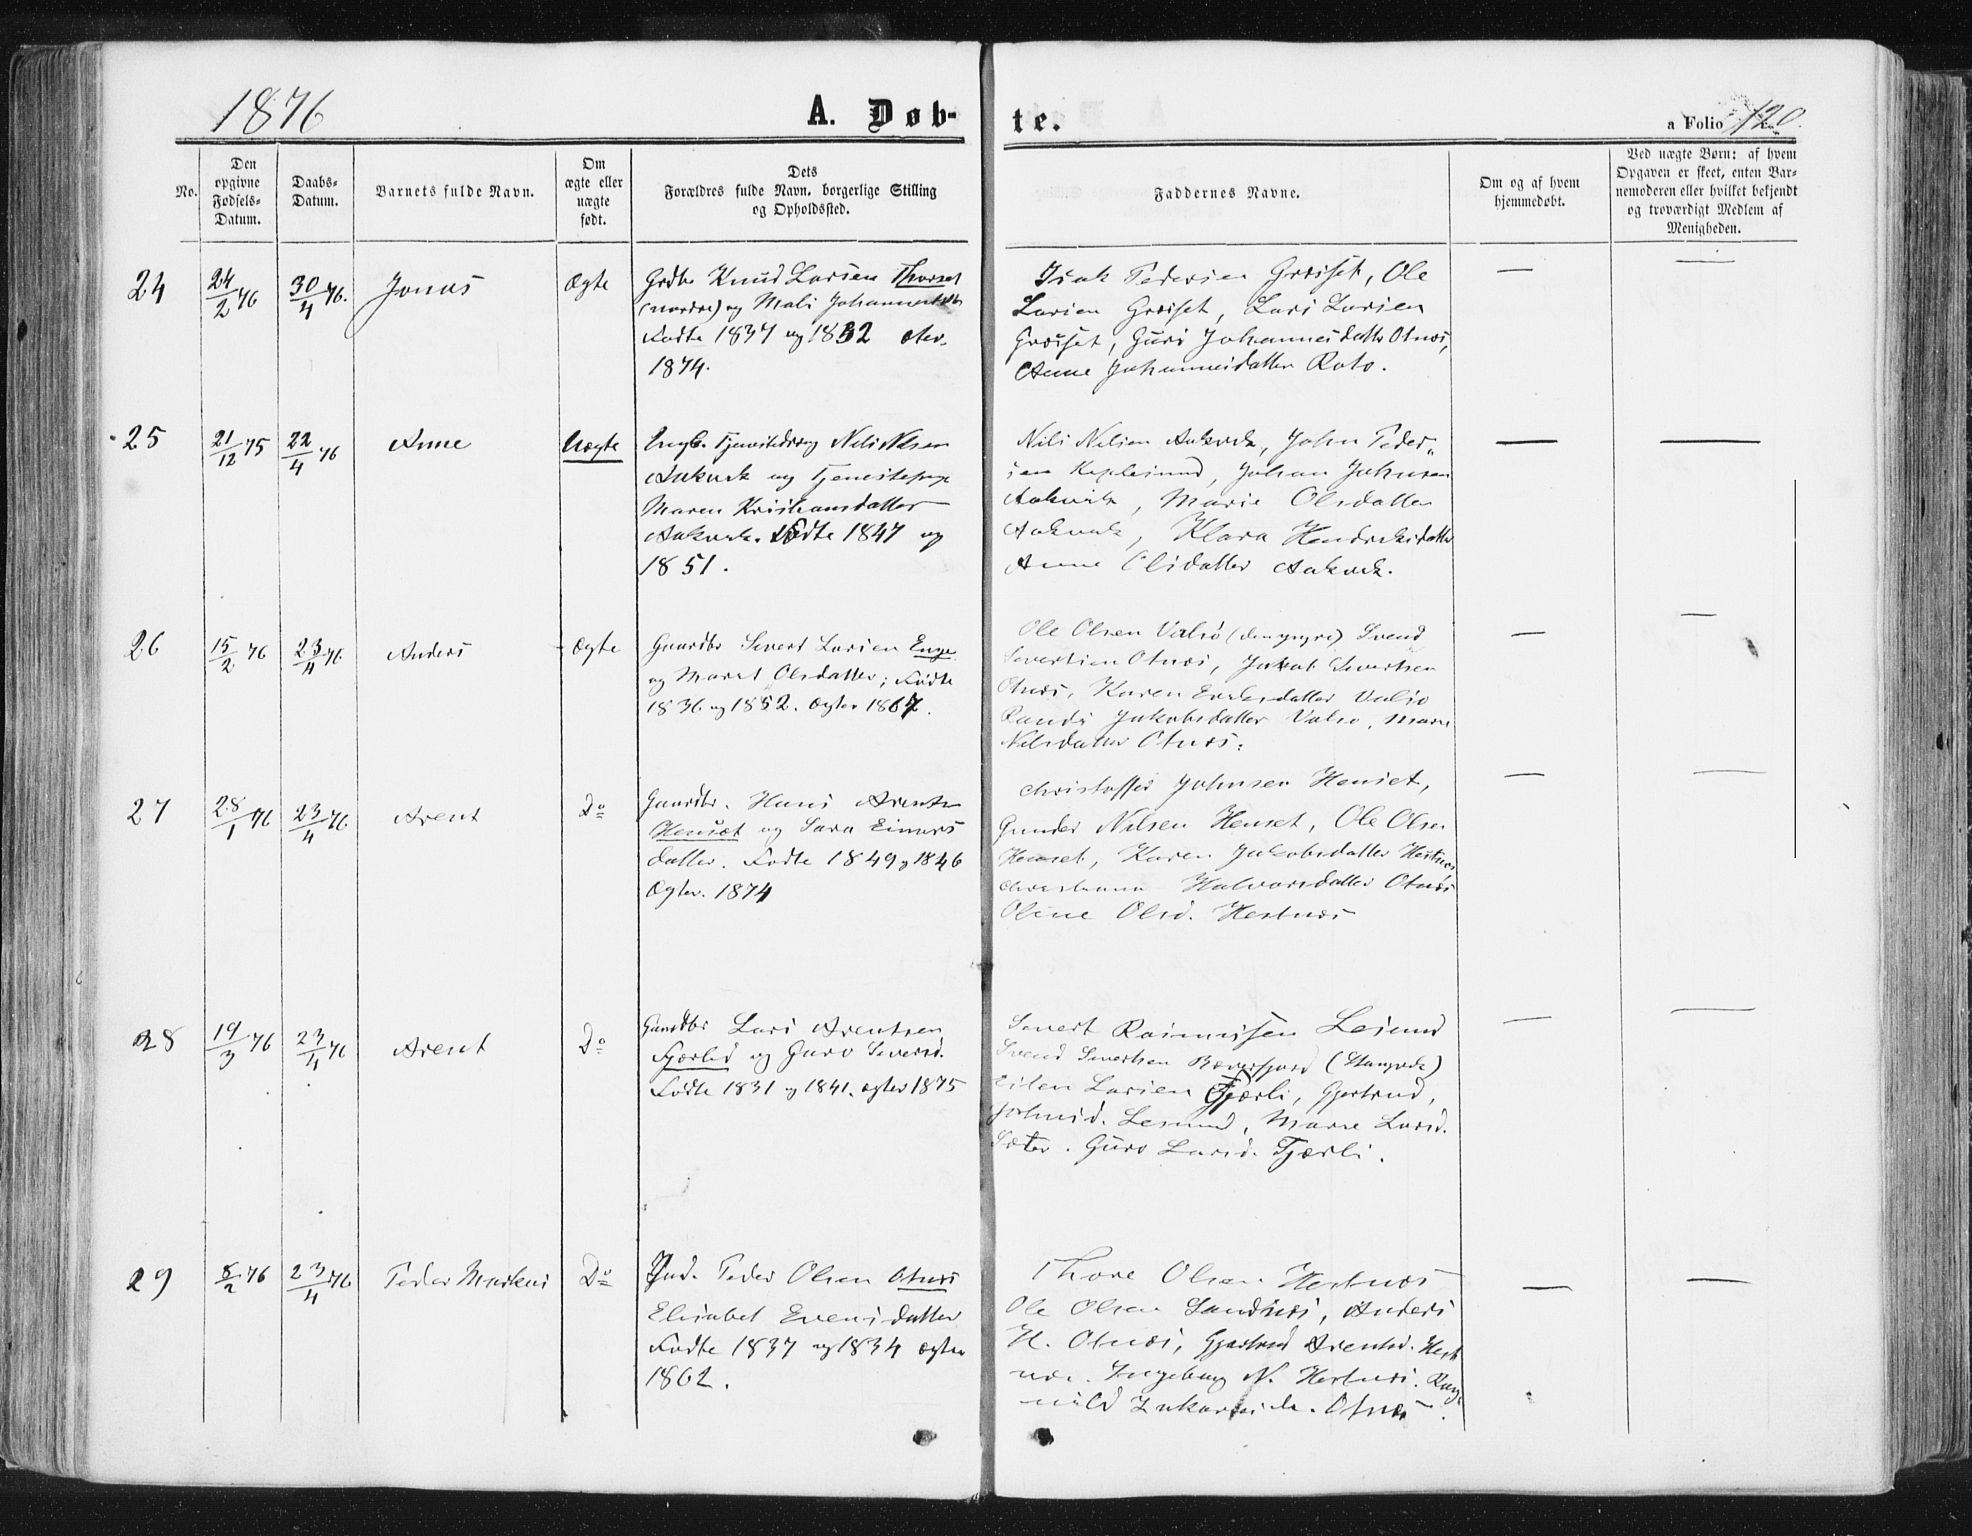 1876
A. Døb-
te.
a Folio 120.
No.
Den opgivne Fødsels-Datum.
Daabs-Datum.
Barnets fulde Navn.
Om ægte eller uægte født.
Dets Forældres fulde Navn, borgerlige Stilling og Opholdssted.
Faddernes Navne.
Om og af hvem hjemmedøbt.
Ved uægte Børn: af hvem Opgaven er skeet, enten Barnemoderen eller hvilket bekjendt og troværdigt Medlem af Menigheden.
24
24/2 76
30/4 76.
Jonas
Ægte
Grdbr Knud Larsen Thorset
(nordre) og Mali Johannesdtr
Fødte 1837 og 1832
1874.
Isak Pedersen Grøset, Ole
Larsen Grøset, Lars Larsen
Grøset, Guri Johannesdatter Otnes,
Anne Johannesdatter Roto.
—
—
25
21/12 75
22/4 76
Anne
Uægte
Ungk. Nils Nilsen
Aakvik og Tjenestepige
Maren Kristiansdatter
Aakvik. Fødte 1847 og
1851.
Nils Nilsen Aakvik, John Peder-
sen, Johan Johnsen
Aakvik, Marie Olsdatter
Aakvik, Klara Hendriksdatter
Anne Olsdatter Aakvik.
—
—
26
15/2 76
23/4 76
Anders
Ægte
Gaardbr Sivert Larsen Enge
og Marit Olsdatter; Fødte
1836 og 1852. Ægtev 1867.
Ole Olsen Valsø (den yngre) Svend
Sivertsen Otnes, Jakob Sivertsen
Otnes, Karen Eriksdatter Valsø
Randi Jakobsdatter Valsø, Maren
Nilsdatter Otnes.
—
—
27
28/1 76
23/4 76
Arent
Do
Gaardbr. Hans Arentsen
Henset og Sara Einars
datter. Fødte 1849 og 1846
Ægtev. 1874
Christoffer Johnsen Henset,
Gunder Nilsen Henset, Ole Olsen
Henset, Karen Jakobsdatter Hestnes
Halvorsdatter Otnes
Oline Olsd. Hestnes
—
—
28
19/3 76
23/4 76
Arent
Do
Gaardbr Lars Arentsen
Fjærlid og Guro Siversd.
Fødte 1831 og 1841. Ægtev 1875
Sivert Rasmussen Lesund
Svend Sivertsen Bæverfjord (Stangvik)
Larsen Fjærli, Gjertrud,
Johnsd. Lesund, Marie Larsd.
Sæter. Guro Larsd. Fjærli.
—
—
29
8/2 76
23/4 76
Peder Markus
Do
Inds. Peder Olsen Otnes
Elisabet Evensdatter
Fødte 1837 og 1834 Ægtev
1862.
Thore Olsen Hestnes
Ole Olsen Sandnes, Anders
H. Otnes, Gjertrud Arentsd. Hest
nes. Ingeborg N. Hestnes. Rag
nild Otnes.
—
—